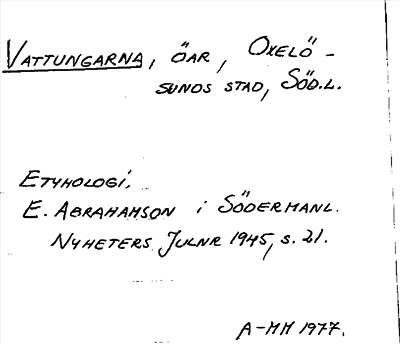 VATTUNGARNA, ÖAR, OXELÖ-
SUNDS STAD, SÖD.L.
ETYMOLOGI.
E. ABRAHAMSON i SÖDERMANL.
NYHETERS JULNR 1945, s. 21.
A-MM 1977.